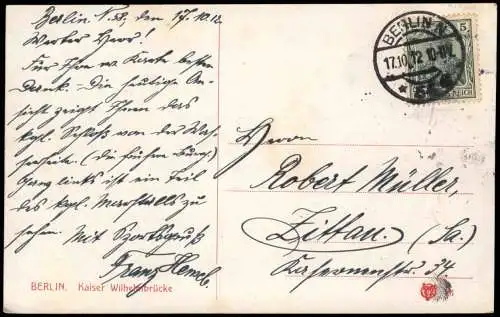 Berlin N. 58, den 17.10.12
Werter Herr!
Für Ihre w. Karte besten
Dank. Die heutige An-
sicht zeigt Ihnen das
kgl. Schloß von der Was-
serseite (die frühere Burg)
Ganz links ist ein Teil
des kgl. Marstalls zu
sehen. Mit Sportsgruß
Franz
BERLIN. Kaiser Wilhelmbrücke
BERLIN N.
17.10.12
5
REICH
Herrn
Robert Müller,
Zittau. (Sa.)
Kasernenstr. 34